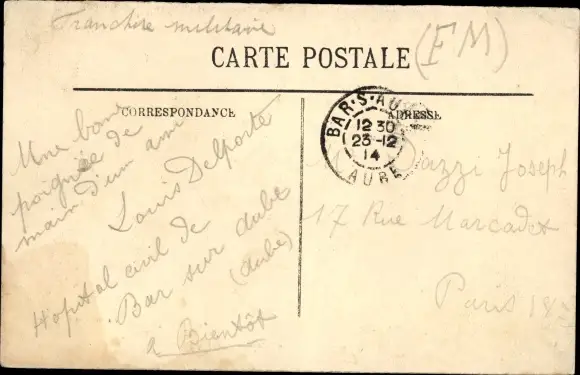 Franchise militaire
(FM)
CARTE POSTALE
CORRESPONDANCE
Une bonne
poignée de
main d'un ami
Louis Delporte
Hopital civil de
Bar sur aube
(aube)
à Bientôt
ADRESSE
BAR-S-AUBE
12 30
23-12
14
AUBE
Joseph
17 Rue Marcadet
Paris